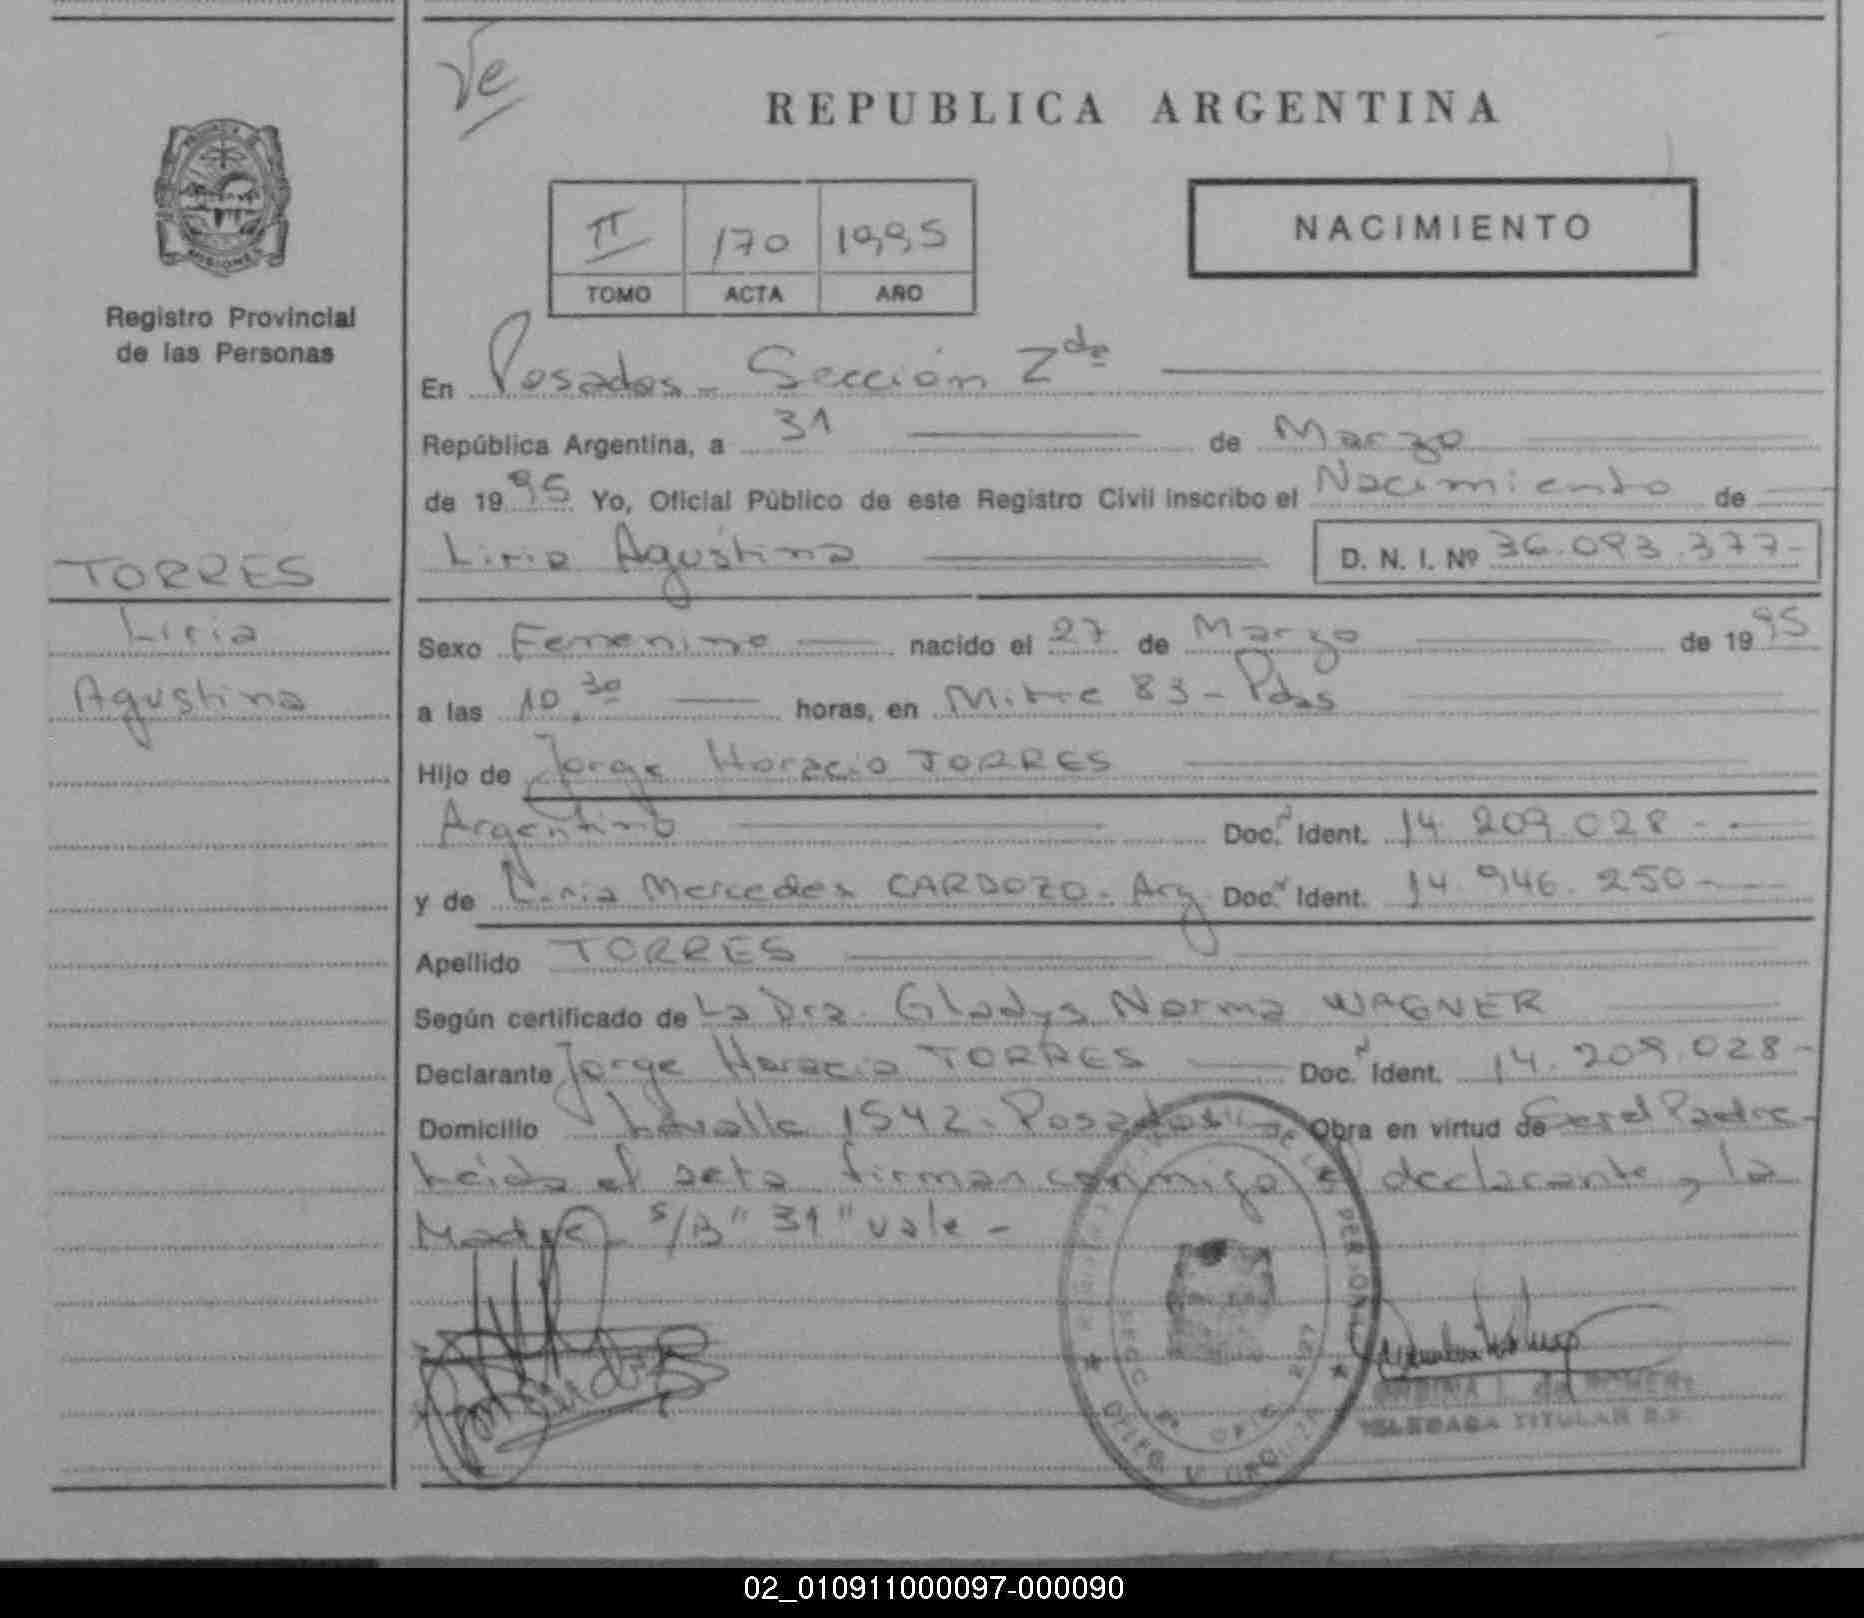 Ve
REPUBLICA ARGENTINA
MISIONES
II 170 1995
TOMO ACTA AÑO
NACIMIENTO
Registro Provincial
de las Personas
En Posadas - Sección 2da
República Argentina, a 31 de Marzo
de 1995 Yo, Oficial Público de este Registro Civil inscribo el Nacimiento de
Liria Agustina D. N. I. Nº 36.093.377-
TORRES
Liria
Agustina
Sexo Femenino nacido el 27 de Marzo de 1995
a las 10.30 horas, en Mitre 83 - Pdas
Hijo de Jorge Horacio TORRES
Argentino Doc. Ident. 14.209.028 -
y de Liria Mercedes CARDOZO - Arg Doc. Ident. 14.946.250 -
Apellido TORRES
Según certificado de La Dra. Gladys Norma WAGNER
Declarante Jorge Horacio TORRES Doc. Ident. 14.209.028 -
Domicilio Lavalle 1542 - Posadas Obra en virtud de Ser el Padre -
Leida el acta firman conmigo el declarante, la
Madre - S/B "31" vale -
TITULAR
02_010911000097-000090